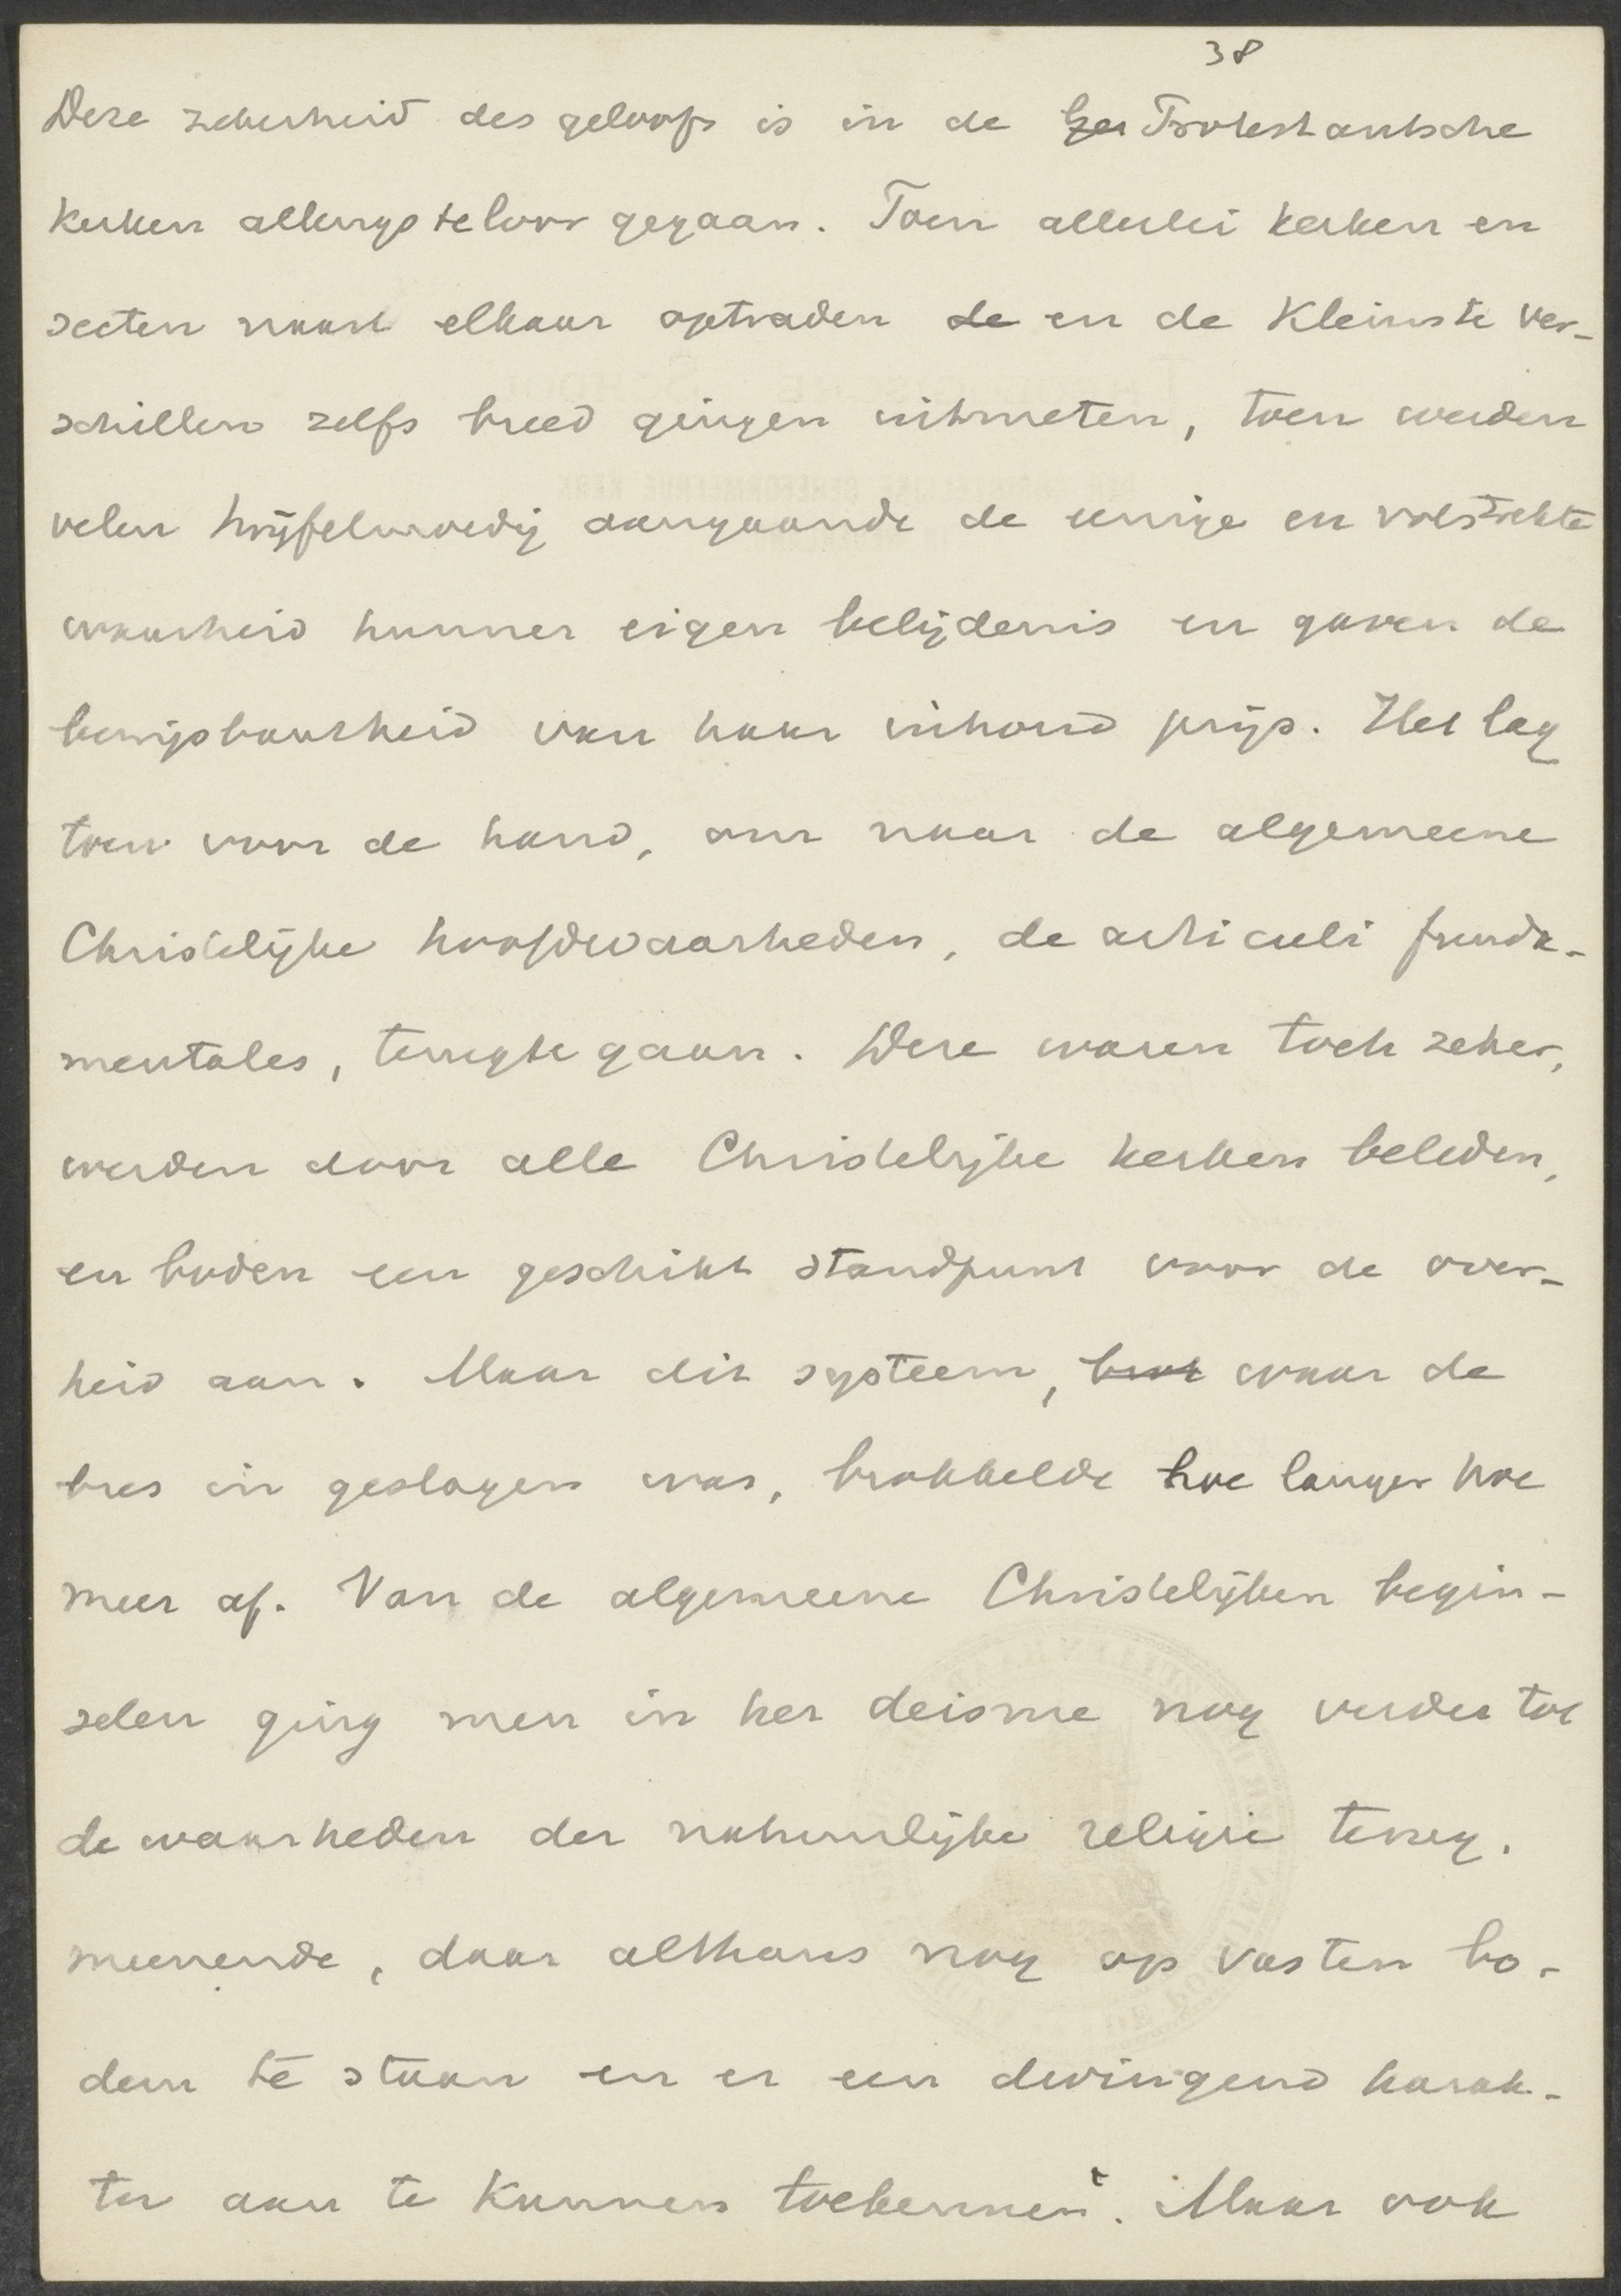 38
Deze zekerheid des geloofs is in de Ger Protestantsche
kerken allengs te loor gegaan. Toen allerlei kerken en
secten naast elkaar optraden de en de kleinste ver-
schillen zelfs breed gingen uitmeten, toen werden
velen twijfelmoedig aangaande de eenige en volstrekte
waarheid hunner eigen belijdenis en gaven de
bewijsbaarheid van haar inhoud prijs. Het lag
toen voor de hand, om naar de algemeene
Christelijke hoofdwaarheden, de articuli funda-
mentales, terugte gaan. Deze waren toch zeker,
werden door alle Christelijke kerken beleden,
en boden een geschikt standpunt voor de over-
heid aan. Maar dit systeem, waar de
bres in geslagen was, brokkelde hoe langer hoe
meer af. Van de algemeene Christelijken begin-
selen ging men in het deisme nog verder tot
de waarheden der natuurlijke religie terug.
meenende, daar althans nog op vasten bo-
dem te staan en er een dwingend karak-
ter aan te kunnen toekennen. Maar ook